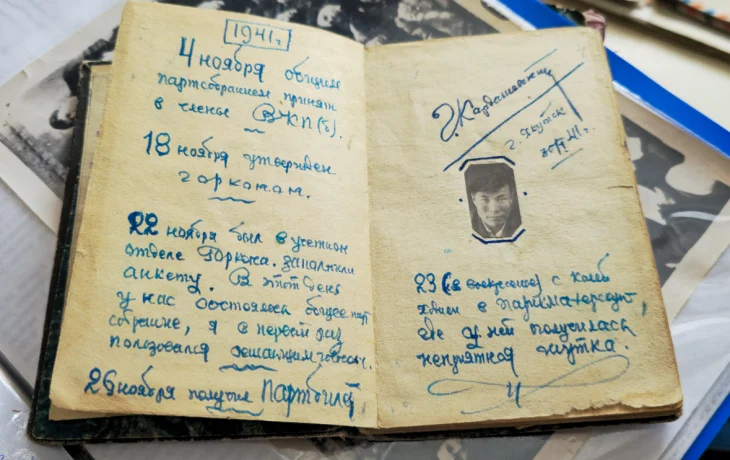 1941 г.
4 ноября общим
партсобранием принят
в члены ВКП(б).
18 ноября утвержден
горкомом.
22 ноября был в учетном
отделе Горкома. заполнили
анкету. В этот день
у нас состоялось общее парт
собрание, я в первый раз
пользовался решающим голосом.
26 ноября получил Партбилет
г. Якутск
23 (в воскресение) с
ходили в
где у ней получилась
неприятная шутка.